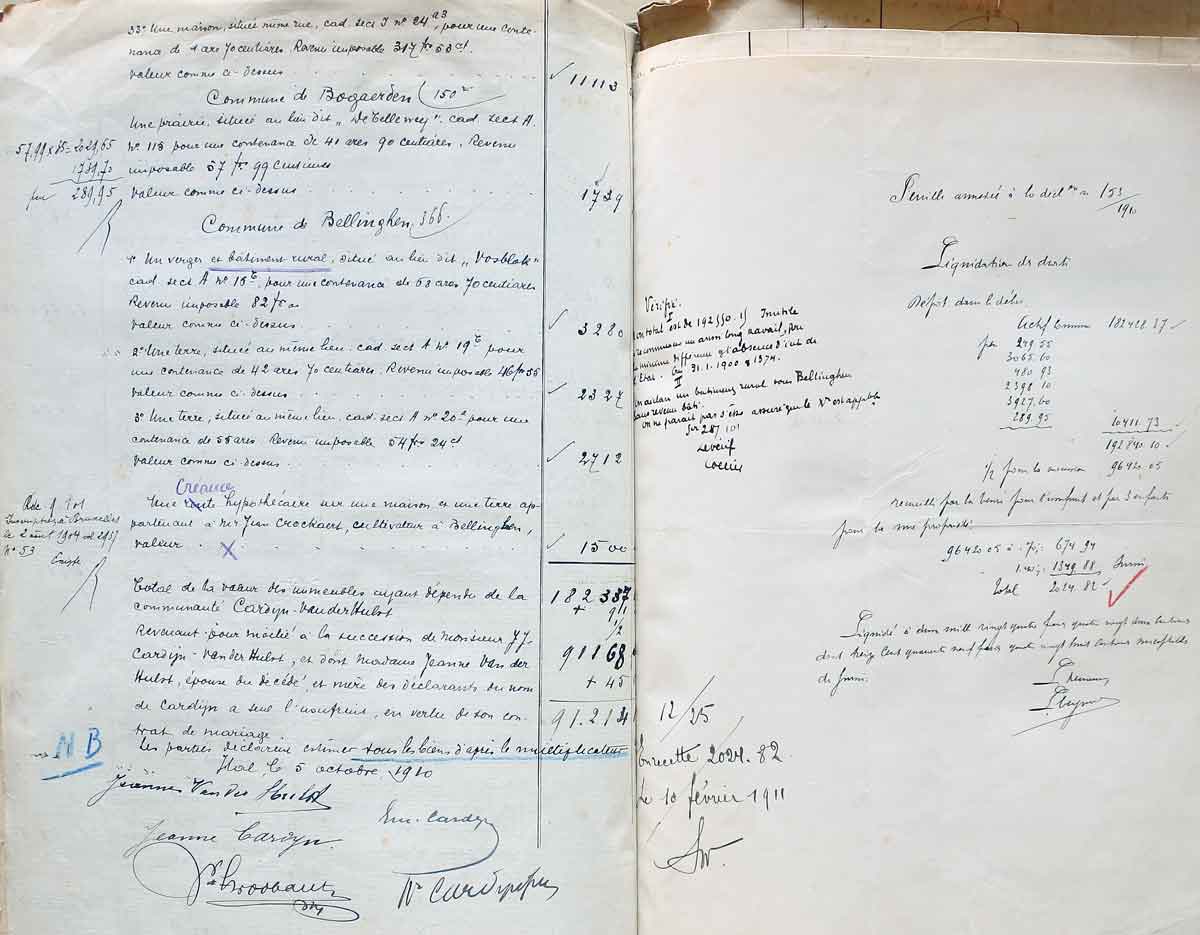 33° Une maison, située même rue, cad. sect J n° 24 a3, pour une conte-
nance de 1 are 70 centiares. Revenu imposable 317 frs 53 ct.
valeur comme ci-dessus 11113
Commune de Bogaerden 150
Une prairie, située au lieu dit cad. sect A.
n° 116 pour une contenance de 41 ares 90 centiares. Revenu
imposable 57 frs 99 Centimes
valeur comme ci-dessus 1739
57,99 x 35 = 2029,65
1739,70
pm 289,95
Commune de Bellinghen, 366.
1° Un verger et bâtiment rural, situé au lieu dit „Vosblok"
cad. sect A n° 15 pour une contenance de 58 ares 70 centiares
Revenu imposable 82 frs
valeur comme ci-dessus 3280
2° Une terre, située au même lieu. cad. sect A n° 19 pour
une contenance de 42 ares 70 centiares. Revenu imposable 46 frs 55
valeur comme ci-dessus 2327
3° Une terre, située au même lieu, cad. sect A n° 20 pour une
contenance de 55 ares Revenu imposable 54 frs 24 ct
valeur comme ci-dessus 2712
Creance
Une hypothécaire sur une maison et une terre ap-
partenant à Mr Jean Crockaert, cultivateur à Bellinghen,
valeur X 1500
à Bruxelles
le 2 août 1904 vol 2937
N° 53
Total de la valeur des immeubles ayant dépendu de la 182.337
communauté Cardijn-VanderHulst + 911
Revenant pour moitié à la succession de Monsieur J.J. 1/2
Cardijn-VanderHulst, et dont Madame Jeanne Van der 91168
Hulst, épouse du décédé, et mère des déclarants du nom + 45
de Cardijn a seul l'usufruit, en vertu de son con- 91.214
trat de mariage.
Les parties déclarent estimer tous les biens d'après le multiplicateur
NB
Hal, le 5 octobre 1910
Jeanne Van der Hulst
Em. Cardijn
Jeanne Cardyn.
Feuille annexée à la décl on n° 153/1910
Liquidation des droits
Dépôt dans le délai
Actif Commun 182428.37
pm 249 55
3065.60
480 93
2398 10
3927.60
289.95
10411.73
192840.10
1/2 pour la succession 96420.05
recueillie par la veuve pour l'usufruit et par 3 enfants
pour la nue propriété
96420.05 à 674 94
1349 88
Total 2024.82
Liquidé à deux mille vingt quatre francs quatre vingt deux centimes
dont treize cent quarante neuf francs quatre vingt huit centimes susceptibles
de
Vérifié.
I
total est de 192550.15 Inutile
recommencer un aussi long travail, vu
minime différence et absence d'
31.1.1900 n° 1374.
II
un bâtiment rural sous Bellinghen
sans revenu bâti.
On ne paraît pas s'être assuré que le n° est applicable
12/25
En recette 2024.82
Le 10 février 1911